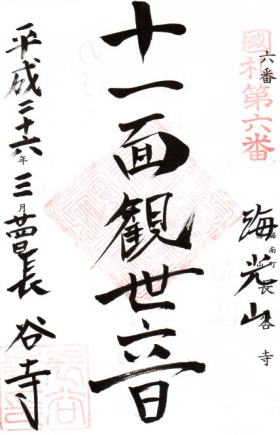 國札第六番
六番
海光山
長谷寺
十一面観世音
平成二十六年三月
長谷寺